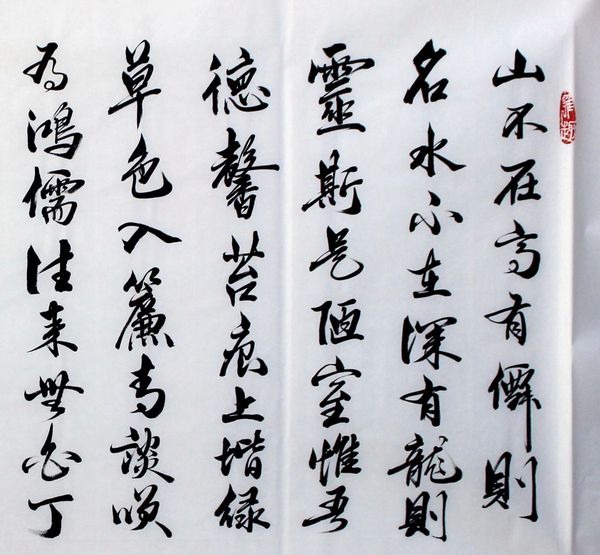 雅趣
山不在高有僊則
名水不在深有龍則
靈斯是陋室惟吾
德馨苔痕上堦綠
草色入簾青談咲
有鴻儒往来無白丁